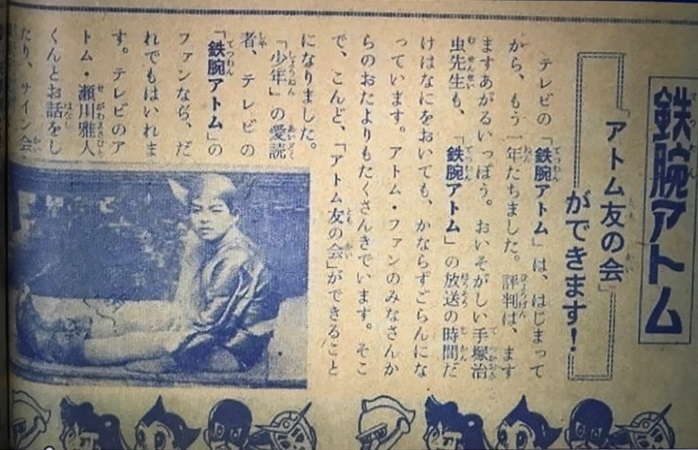 鉄腕アトム
「アトム友の会」
ができます！
テレビの「鉄腕アトム」は、はじまって
から、もう一年たちました。評判は、ます
ますあがるいっぽう。おいそがしい手塚治
虫先生も、「鉄腕アトム」の放送の時間だ
けはなにをおいても、かならずごらんにな
っています。アトム・ファンのみなさんか
らのおたよりもたくさんきています。そこ
で、こんど、「アトム友の会」ができること
になりました。
「少年」の愛読
者、テレビの
「鉄腕アトム」の
ファンなら、だ
れでもはいれま
す。テレビのア
トム・瀬川雅人
くんとお話をし
たり、サイン会